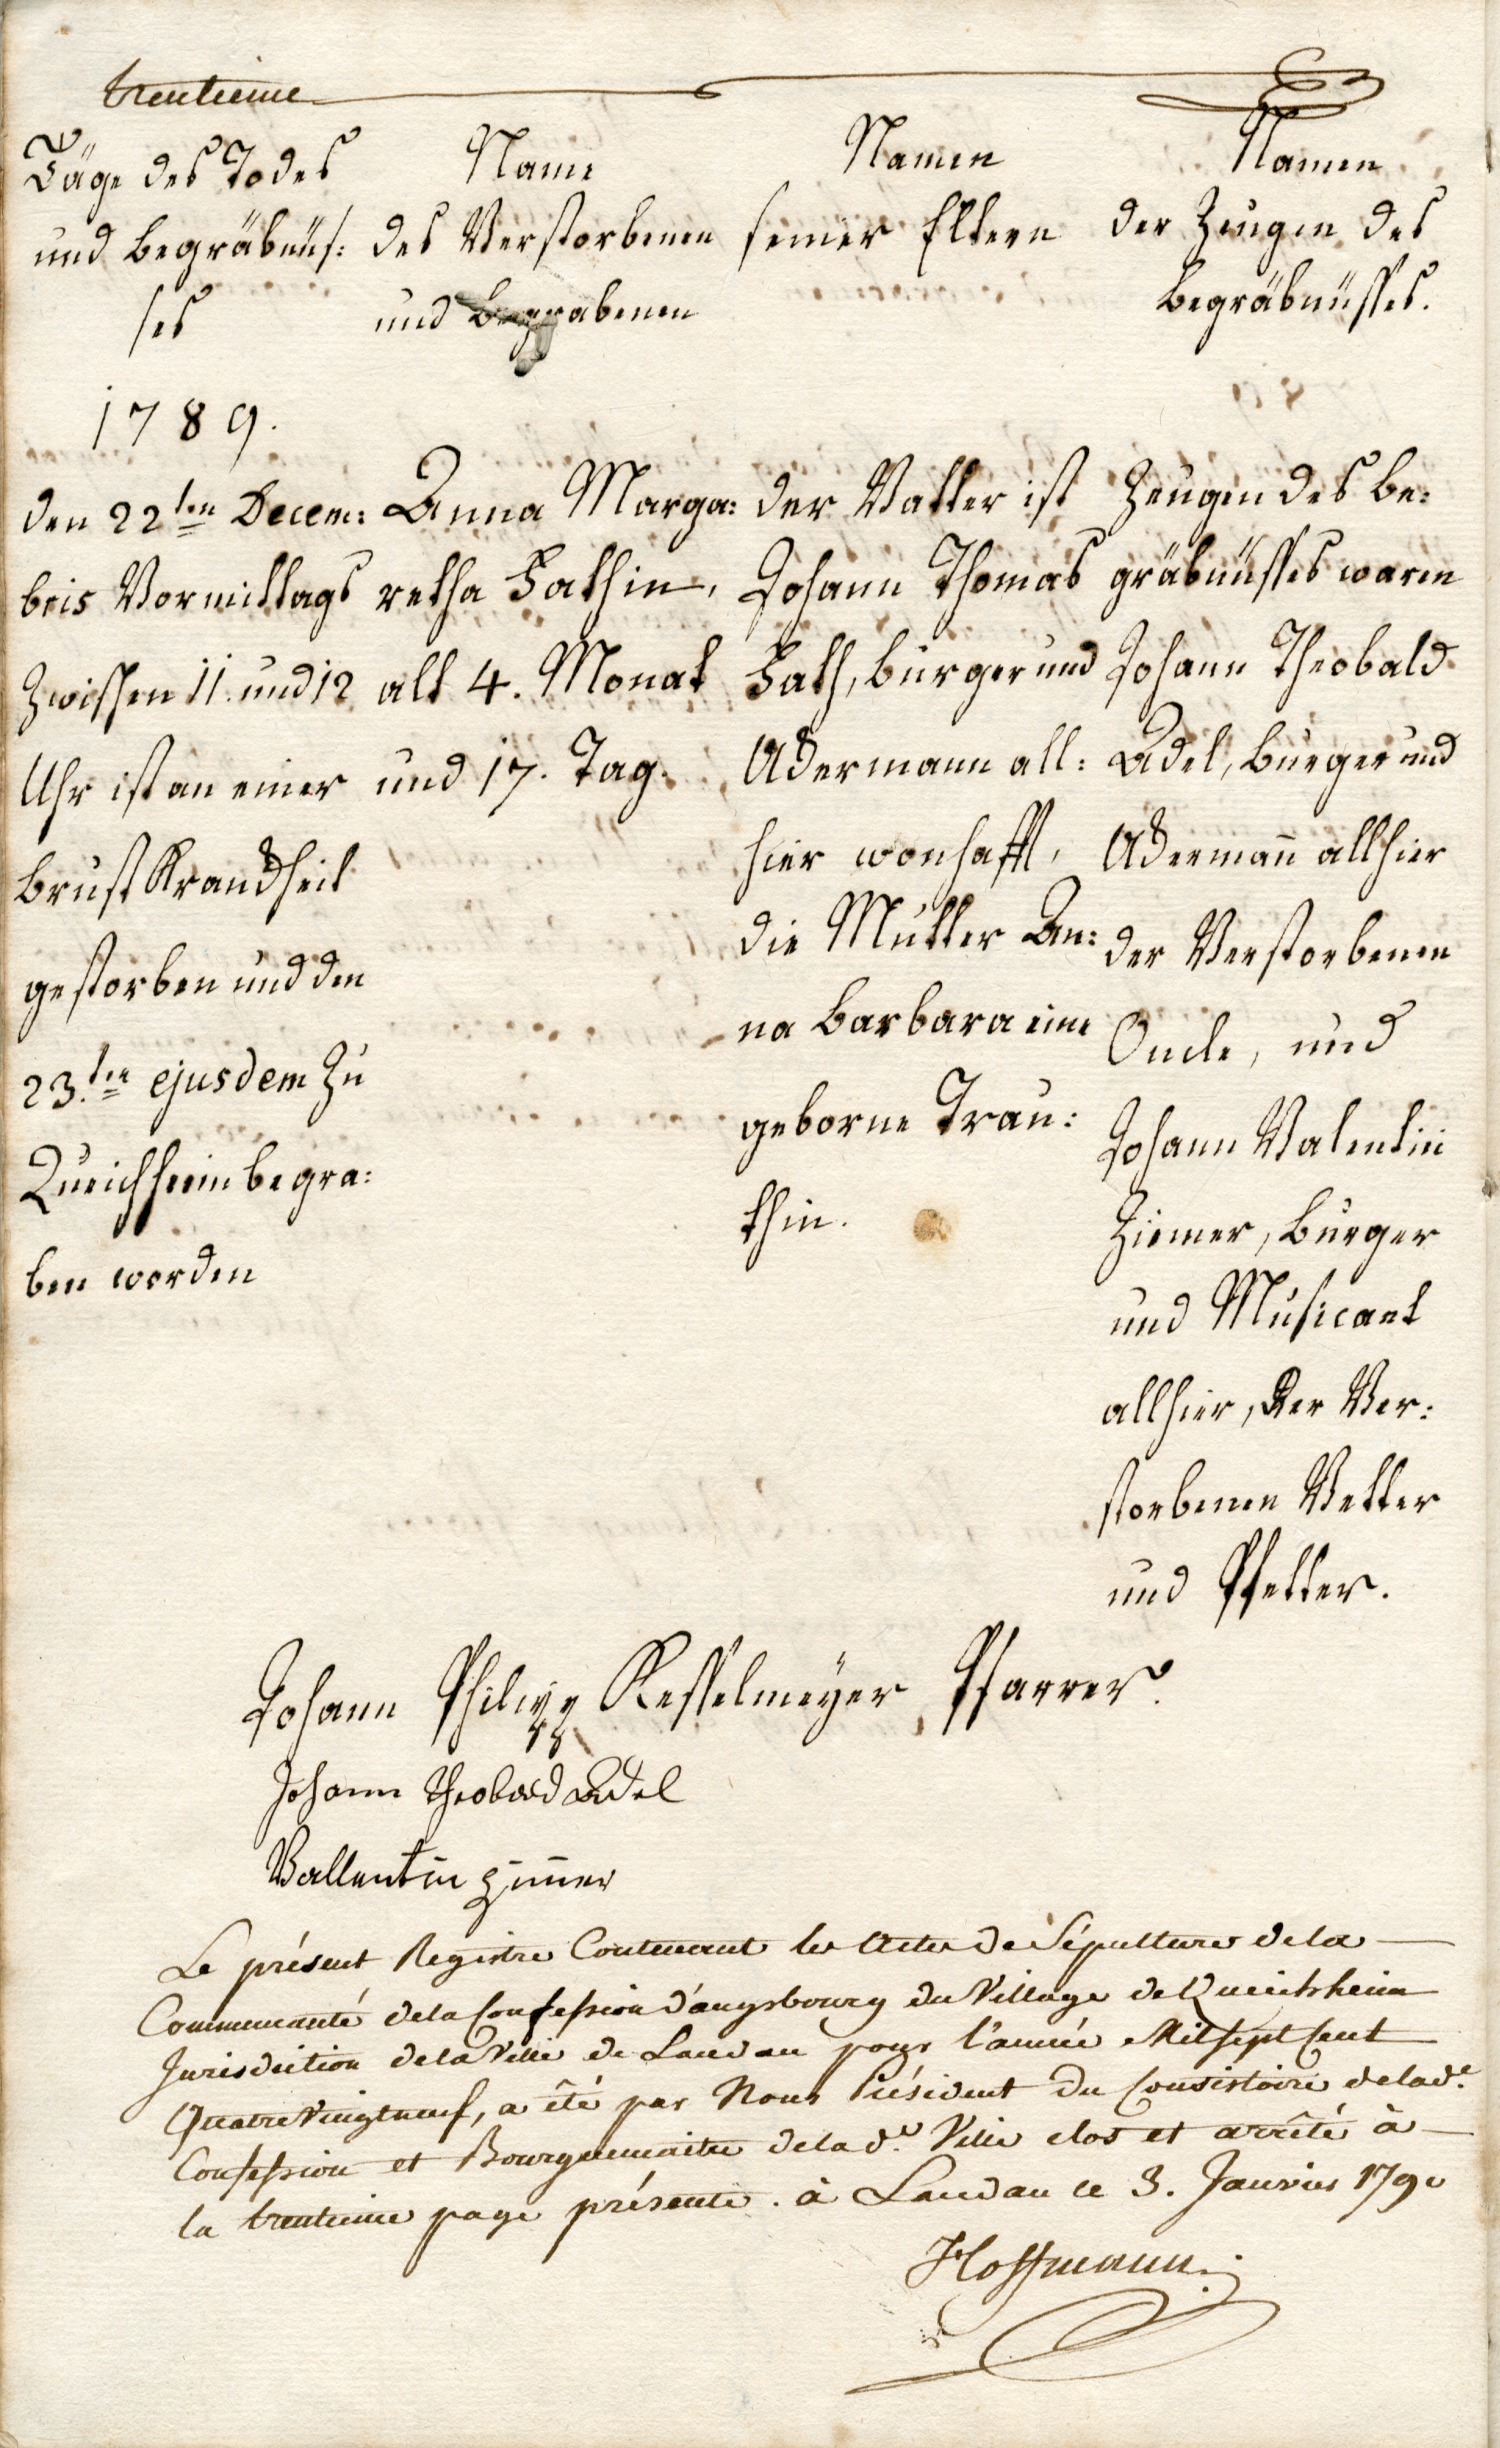 trentieme
Täge des Todes
und Begräbnüs:
ses
Name
des Verstorbenen
und Begrabenen
Namen
seiner Eltern
Namen
der Zeugen des
Begräbnüsses.
1789.
den 22ten Decem:
bris Vormittags
zwischen 11. und 12
Uhr ist an einer
Brust Kranckheit
gestorben und den
23.ten ejusdem zu
Queichheim begra:
ben worden
Anna Marga:
retha Fathin,
alt 4. Monat
und 17. Tag.
der Vatter ist
Johann Thomas
Fath, Burger und
Ackermann all:
hier wonhafft,
die Mutter An:
na Barbara eine
geborne Trau:
thin.
Zeugen des Be:
gräbnüsses waren
Johann Theobald
Ackermañ allhier
der Verstorbenen
Oncle, und
Johann Valentin
Ziemer, Burger
und Musicant
allhier, der Ver:
storbenen Vetter
und Pfetter.
Johann Philipp Kesselmeÿer Pfarrer.
Johann Theobald
Vallentin Zim̄er
Le présent Registre Contenant les Actes de Sépulture de la
Communauté de la Confession d'augsbourg du Village de Queichheim
Jurisdiction de la Ville de Landau pour l'année Mil sept Cent
Quatre Vingt neuf, a êté par Nous Président du Consistoire de lad.e
Confession et Bourguemaitre de la d.e Ville clos et arrêté à
la trentieme page présente. à Landau le 3. Janvier 1790
Hoffmann.